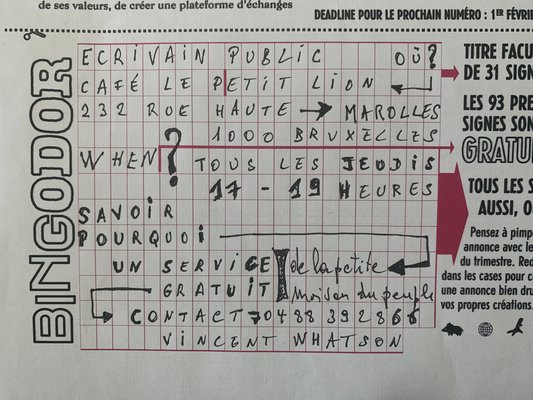 de ses valeurs, de créer une plateforme d'échanges
DEADLINE POUR LE PROCHAIN NUMÉRO : 1ER FÉVRIE
BINGODOR
ECRIVAIN PUBLIC OÙ?
CAFÉ LE PETIT LION
232 RUE HAUTE → MAROLLES
1000 BRUXELLES
WHEN? TOUS LES JEUDIS
17 - 19 HEURES
SAVOIR
POURQUOI
UN SERVICE de la petite
GRATUIT maison du peuple
CONTACT 0488 392866
VINCENT WHATSON
TITRE FACU
DE 31 SIGN
LES 93 PRE
SIGNES SON
GRATUI
TOUS LES S
AUSSI, O
Pensez à pimpe
annonce avec le
du trimestre. Red
dans les cases pour c
une annonce bien dru
vos propres créations.